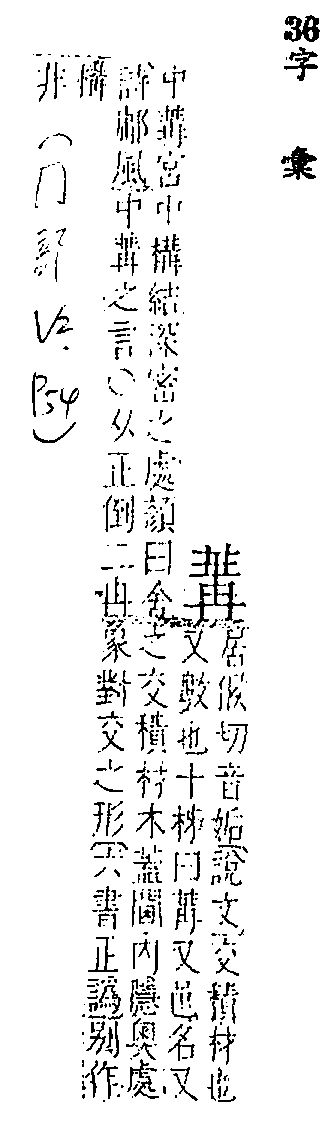 36
字彙
冓
居候切音姤說文交積材也
又數也十秭曰冓又邑名又
中冓宮中構結深密之處顏曰舍之交積材木蓋閫內隱奧處
詩鄘風中冓之言○从正倒二冉象對交之形六書正譌別作
構
非
（冂部 V2. P54）